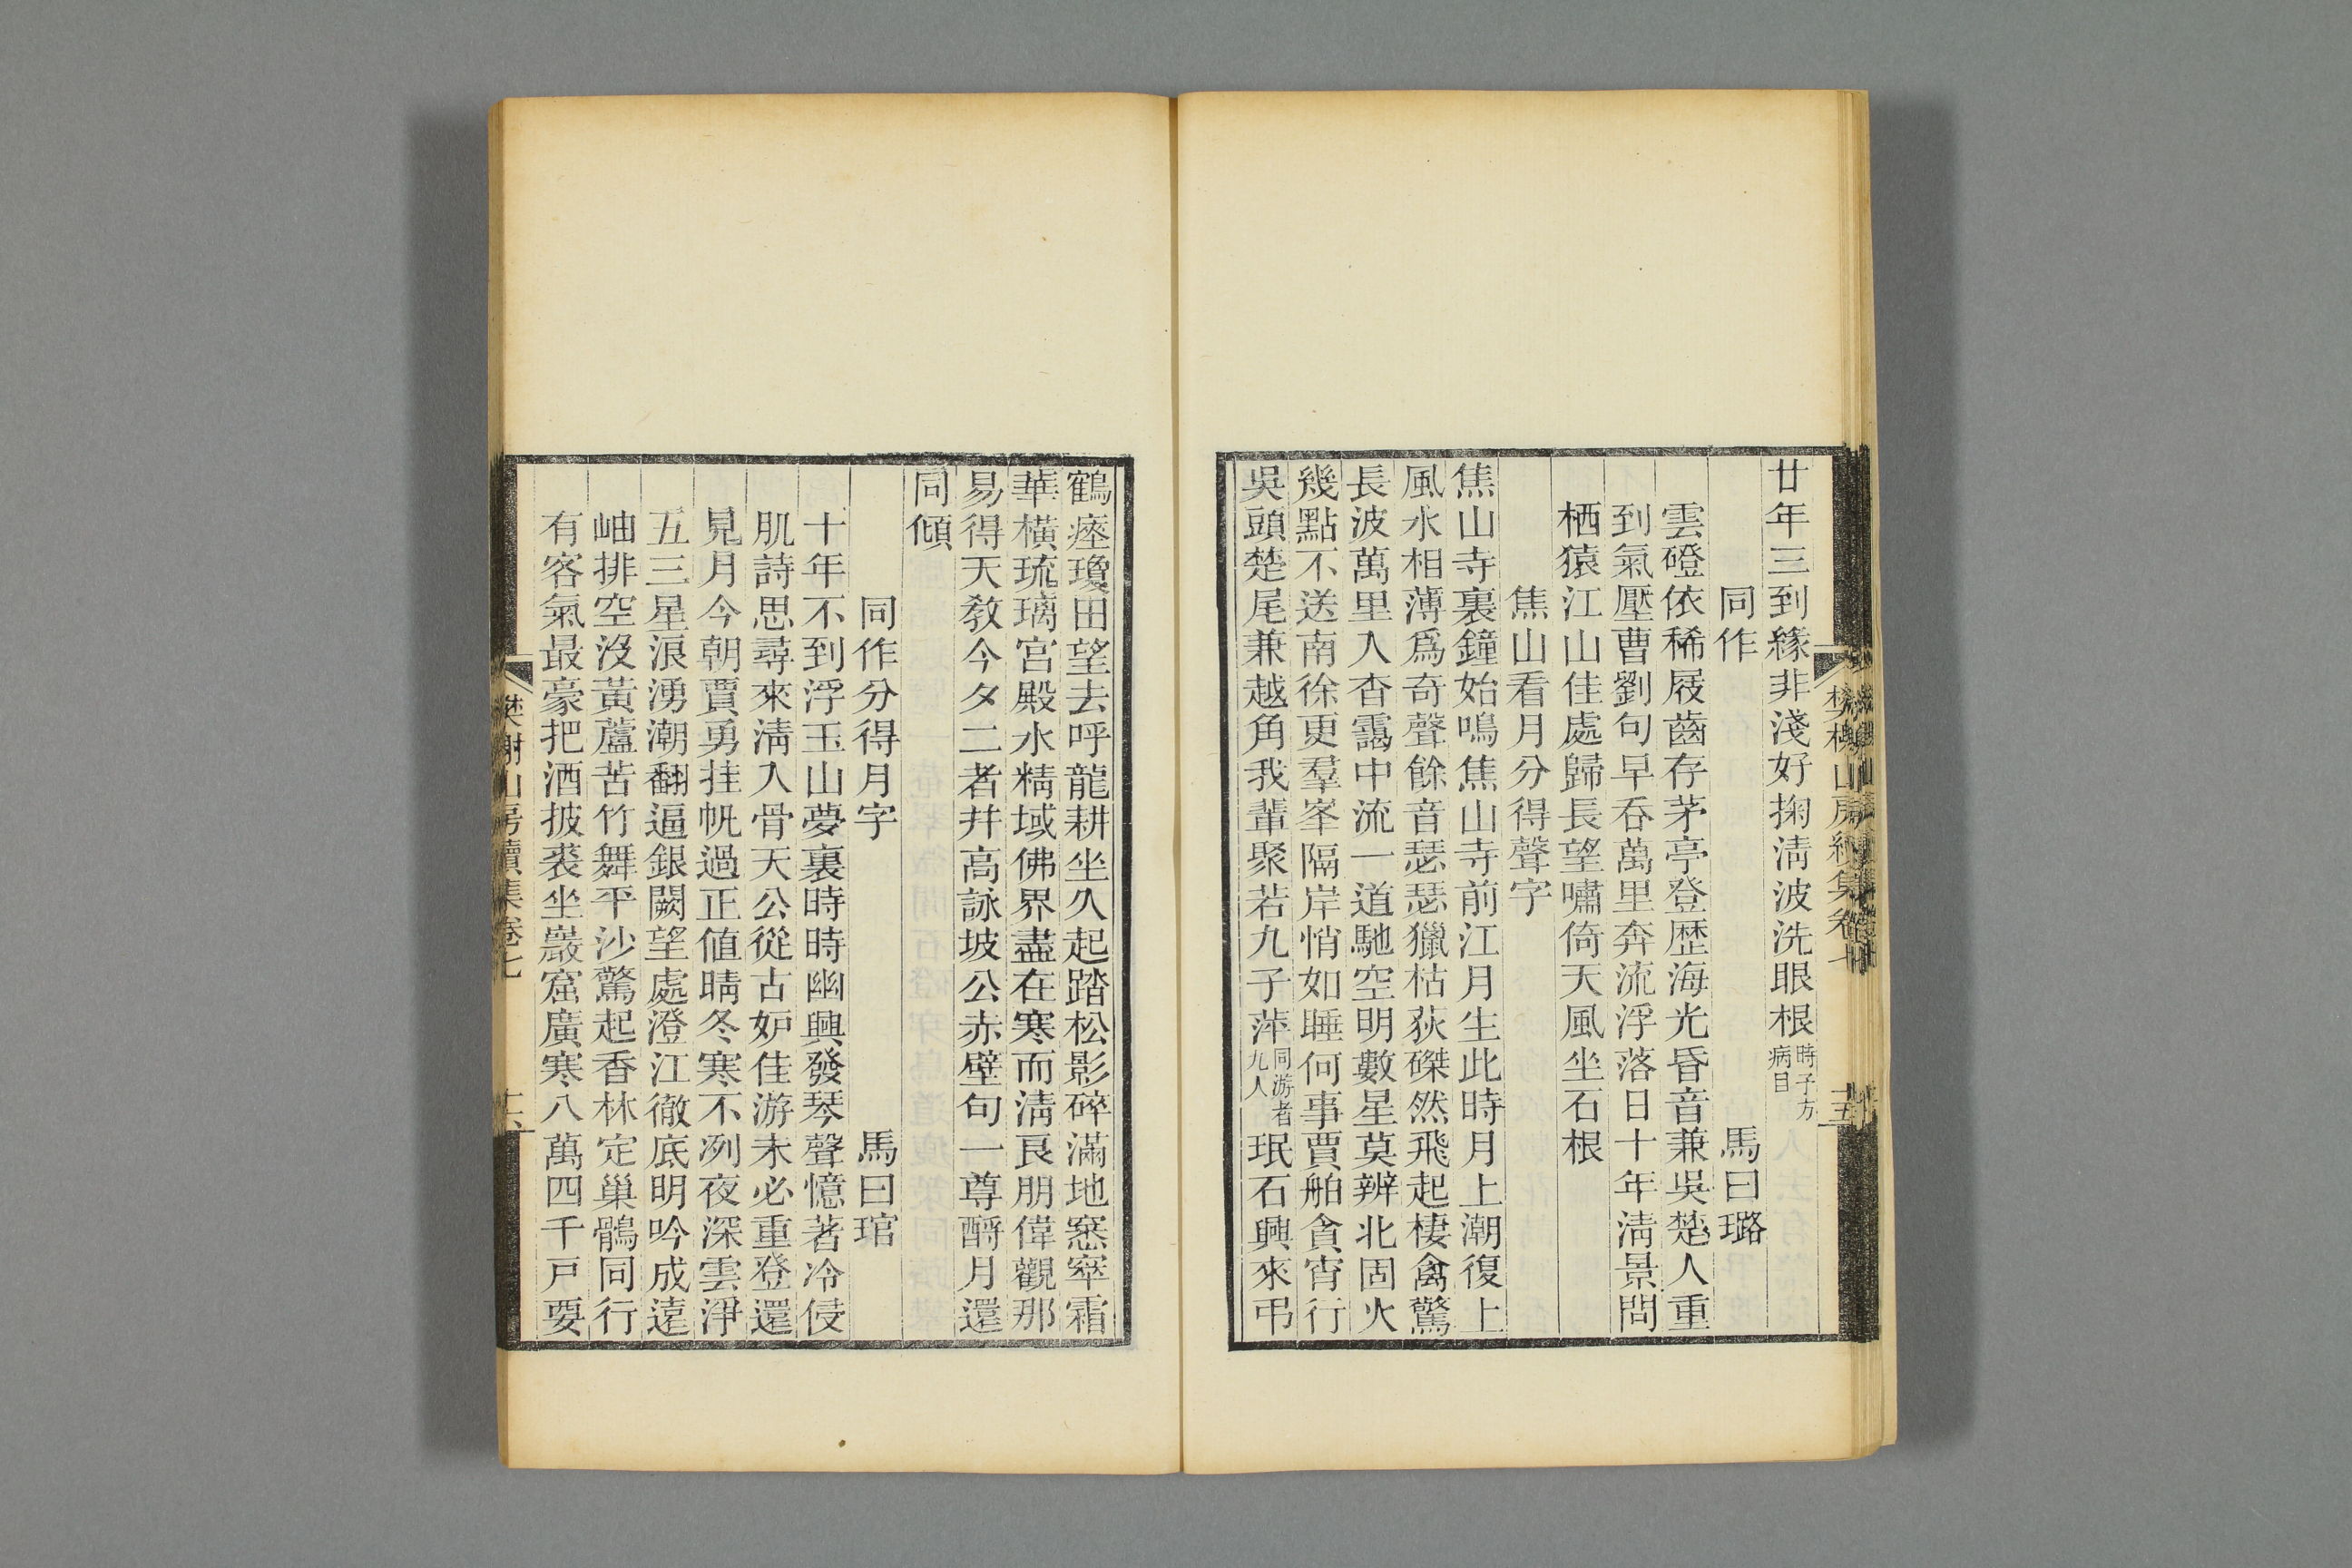 廿年三到緣非淺好掬淸波洗眼根時子方病目
同作　馬曰璐
雲磴依稀屐齒存茅亭登歷海光昏音兼吳楚人重
到氣壓曹劉句早吞萬里奔流浮落日十年淸景問
栖猿江山佳處歸長望嘯倚天風坐石根
焦山看月分得聲字
焦山寺裏鐘始鳴焦山寺前江月生此時月上潮復上
風水相薄爲奇聲餘音瑟瑟獵枯荻磔然飛起棲禽驚
長波萬里入杳靄中流一道馳空明數星莫辨北固火
幾點不送南徐更羣峯隔岸悄如睡何事賈舶貪宵行
吳頭楚尾兼越角我輩聚若九子萍同游者九人珉石興來弔
鶴瘞瓊田望去呼龍耕坐久起踏松影碎滿地窸窣霜
華橫琉璃宮殿水精域佛界盡在寒而淸良朋偉觀那
易得天教今夕二者幷高詠坡公赤壁句一尊酹月還
同傾
同作分得月字　馬曰琯
十年不到浮玉山夢裏時時幽興發琴聲憶著冷侵
肌詩思尋來淸入骨天公從古妒佳游未必重登還
見月今朝賈勇挂帆過正値晴冬寒不冽夜深雲淨
五三星浪湧潮翻逼銀闕望處澄江徹底明吟成遠
岫排空沒黃蘆苦竹舞平沙驚起香林定巢鶻同行
有客氣最豪把酒披裘坐巖窟廣寒八萬四千戸要
樊榭山房續集卷七